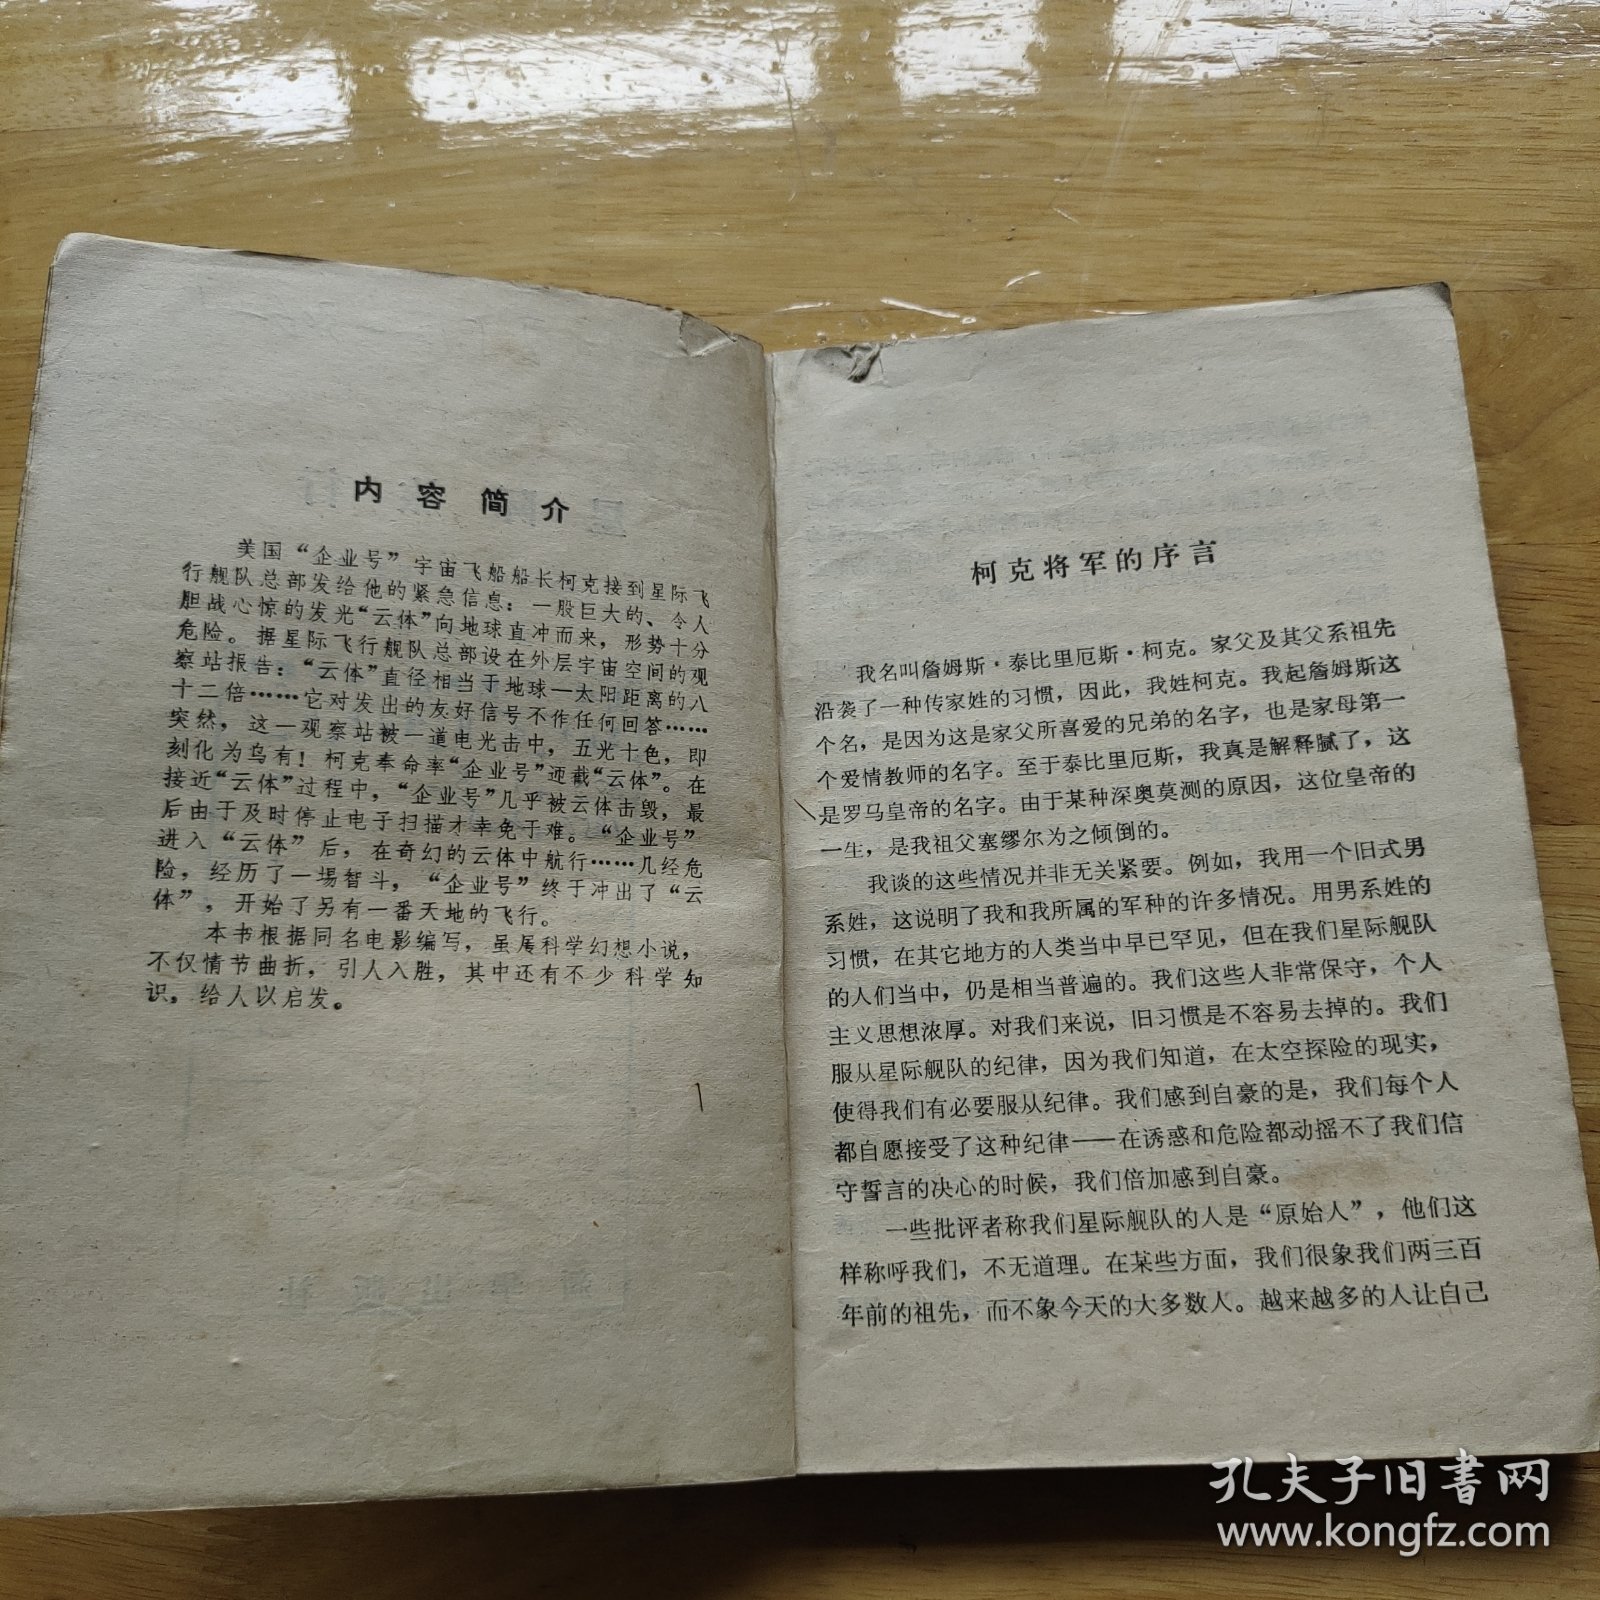 内容简介
美国“企业号”宇宙飞船船长柯克接到星际飞
行舰队总部发给他的紧急信息：一股巨大的、令人
胆战心惊的发光“云体”向地球直冲而来，形势十分
危险。据星际飞行舰队总部设在外层宇宙空间的观
察站报告：“云体”直径相当于地球—太阳距离的八
十二倍……它对发出的友好信号不作任何回答……
突然，这一观察站被一道电光击中，五光十色，即
刻化为乌有！柯克奉命率“企业号”迎截“云体”。在
接近“云体”过程中，“企业号”几乎被云体击毁，最
后由于及时停止电子扫描才幸免于难。“企业号”
进入“云体”后，在奇幻的云体中航行……几经危
险，经历了一场智斗，“企业号”终于冲出了“云
体”，开始了另有一番天地的飞行。
本书根据同名电影编写，虽属科学幻想小说，
不仅情节曲折，引人入胜，其中还有不少科学知
识，给人以启发。
柯克将军的序言
我名叫詹姆斯·泰比里厄斯·柯克。家父及其父系祖先
沿袭了一种传家姓的习惯，因此，我姓柯克。我起詹姆斯这
个名，是因为这是家父所喜爱的兄弟的名字，也是家母第一
个爱情教师的名字。至于泰比里厄斯，我真是解释腻了，这
是罗马皇帝的名字。由于某种深奥莫测的原因，这位皇帝的
一生，是我祖父塞缪尔为之倾倒的。
我谈的这些情况并非无关紧要。例如，我用一个旧式男
系姓，这说明了我和我所属的军种的许多情况。用男系姓的
习惯，在其它地方的人类当中早已罕见，但在我们星际舰队
的人们当中，仍是相当普遍的。我们这些人非常保守，个人
主义思想浓厚。对我们来说，旧习惯是不容易去掉的。我们
服从星际舰队的纪律，因为我们知道，在太空探险的现实，
使得我们有必要服从纪律。我们感到自豪的是，我们每个人
都自愿接受了这种纪律——在诱惑和危险都动摇不了我们信
守誓言的决心的时候，我们倍加感到自豪。
一些批评者称我们星际舰队的人是“原始人”，他们这
样称呼我们，不无道理。在某些方面，我们很象我们两三百
年前的祖先，而不象今天的大多数人。越来越多的人让自己
孔夫子旧书网
www.kongfz.com